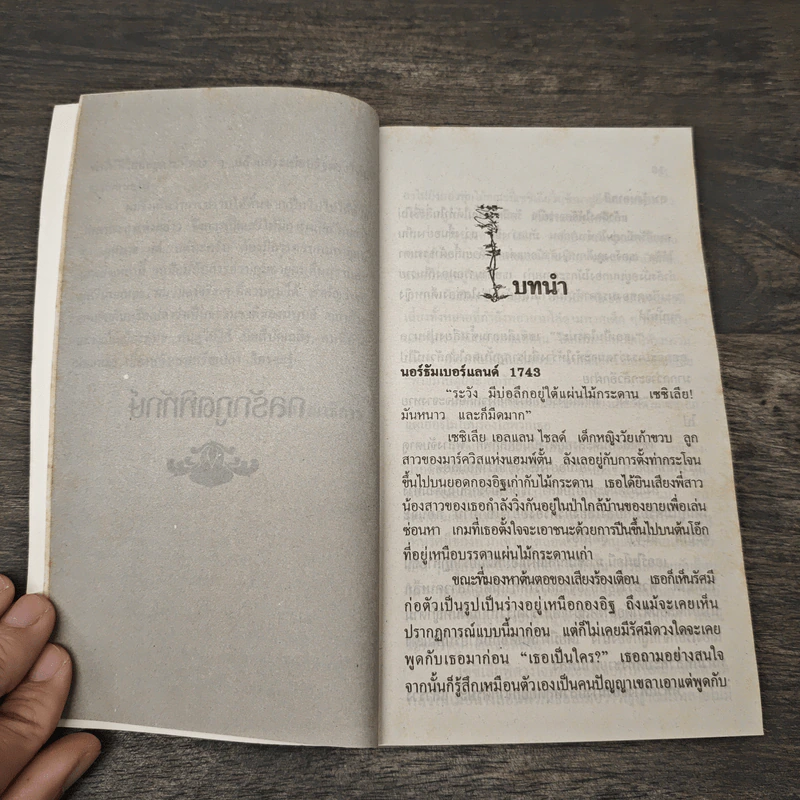 บทนำ
นอร์ธัมเบอร์แลนด์ 1743
“ระวัง มีบ่อลึกอยู่ใต้แผ่นไม้กระดาน เซซิเลีย!
มันหนาว และก็มืดมาก”
เซซิเลีย เอลแลน ไชลด์ เด็กหญิงวัยเก้าขวบ ลูก
สาวของมาร์ควิสแห่งแฮมพ์ตั้น ลังเลอยู่กับการตั้งท่ากระโจน
ขึ้นไปบนยอดกองอิฐเก่ากับไม้กระดาน เธอได้ยินเสียงพี่สาว
น้องสาวของเธอกำลังวิ่งกันอยู่ในป่าใกล้บ้านของยายเพื่อเล่น
ซ่อนหา เกมที่เธอตั้งใจจะเอาชนะด้วยการปีนขึ้นไปบนต้นโอ๊ก
ที่อยู่เหนือบรรดาแผ่นไม้กระดานเก่า
ขณะที่มองหาต้นตอของเสียงร้องเตือน เธอก็เห็นรัศมี
ก่อตัวเป็นรูปเป็นร่างอยู่เหนือกองอิฐ ถึงแม้จะเคยเห็น
ปรากฏการณ์แบบนี้มาก่อน แต่ก็ไม่เคยมีรัศมีดวงใดจะเคย
พูดกับเธอมาก่อน “เธอเป็นใคร?” เธอถามอย่างสนใจ
จากนั้นก็รู้สึกเหมือนตัวเองเป็นคนปัญญาเขลาเอาแต่พูดกับ